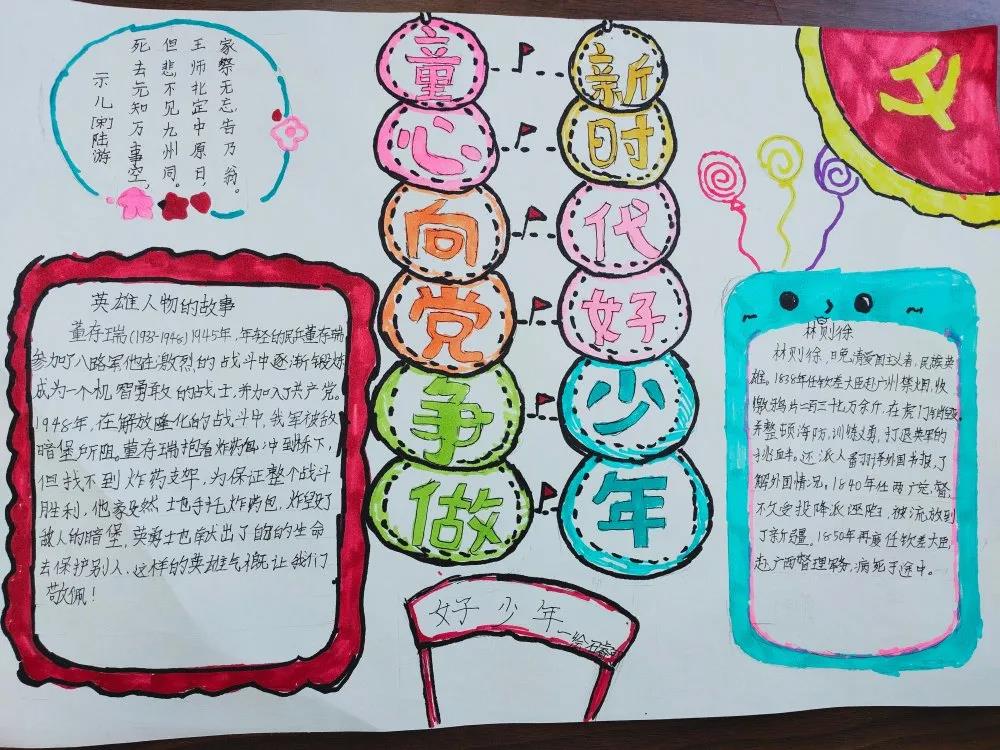 家祭无忘告乃翁。
王师北定中原日，
但悲不见九州同。
死去元知万事空，
示儿[宋]陆游
童心向党争做
新时代好少年
英雄人物的故事
董存瑞(1932-1948)1945年，年轻的民兵董存瑞
参加了八路军他在激烈的战斗中逐渐锻炼
成为一个机智勇敢的战士，并加入了共产党。
1948年，在解放隆化的战斗中，我军被敌
暗堡所阻。董存瑞抱着炸药包，冲到桥下，
但找不到炸药支架，为保证整个战斗
胜利，他家毅然士也手托炸药包，炸毁了
敌人的暗堡，英勇士也献出了自的的生命
去保护别人，这样的英雄气概让我们
敬佩！
林则徐
林则徐，日晚清爱国主义者，民族英
雄。1838年任钦差大臣赴广州禁烟，收
缴鸦片二百三十七万余斤，在虎门
并整顿海防，训练义勇，打退英军的
挑衅，还派人翻译外国书报，了
解外国情况，1840年任两广总督，
不久受投降派诬陷，被流放到
了新疆，1850年再度任钦差大臣，
赴广西督理军务，病死于途中。
好少年